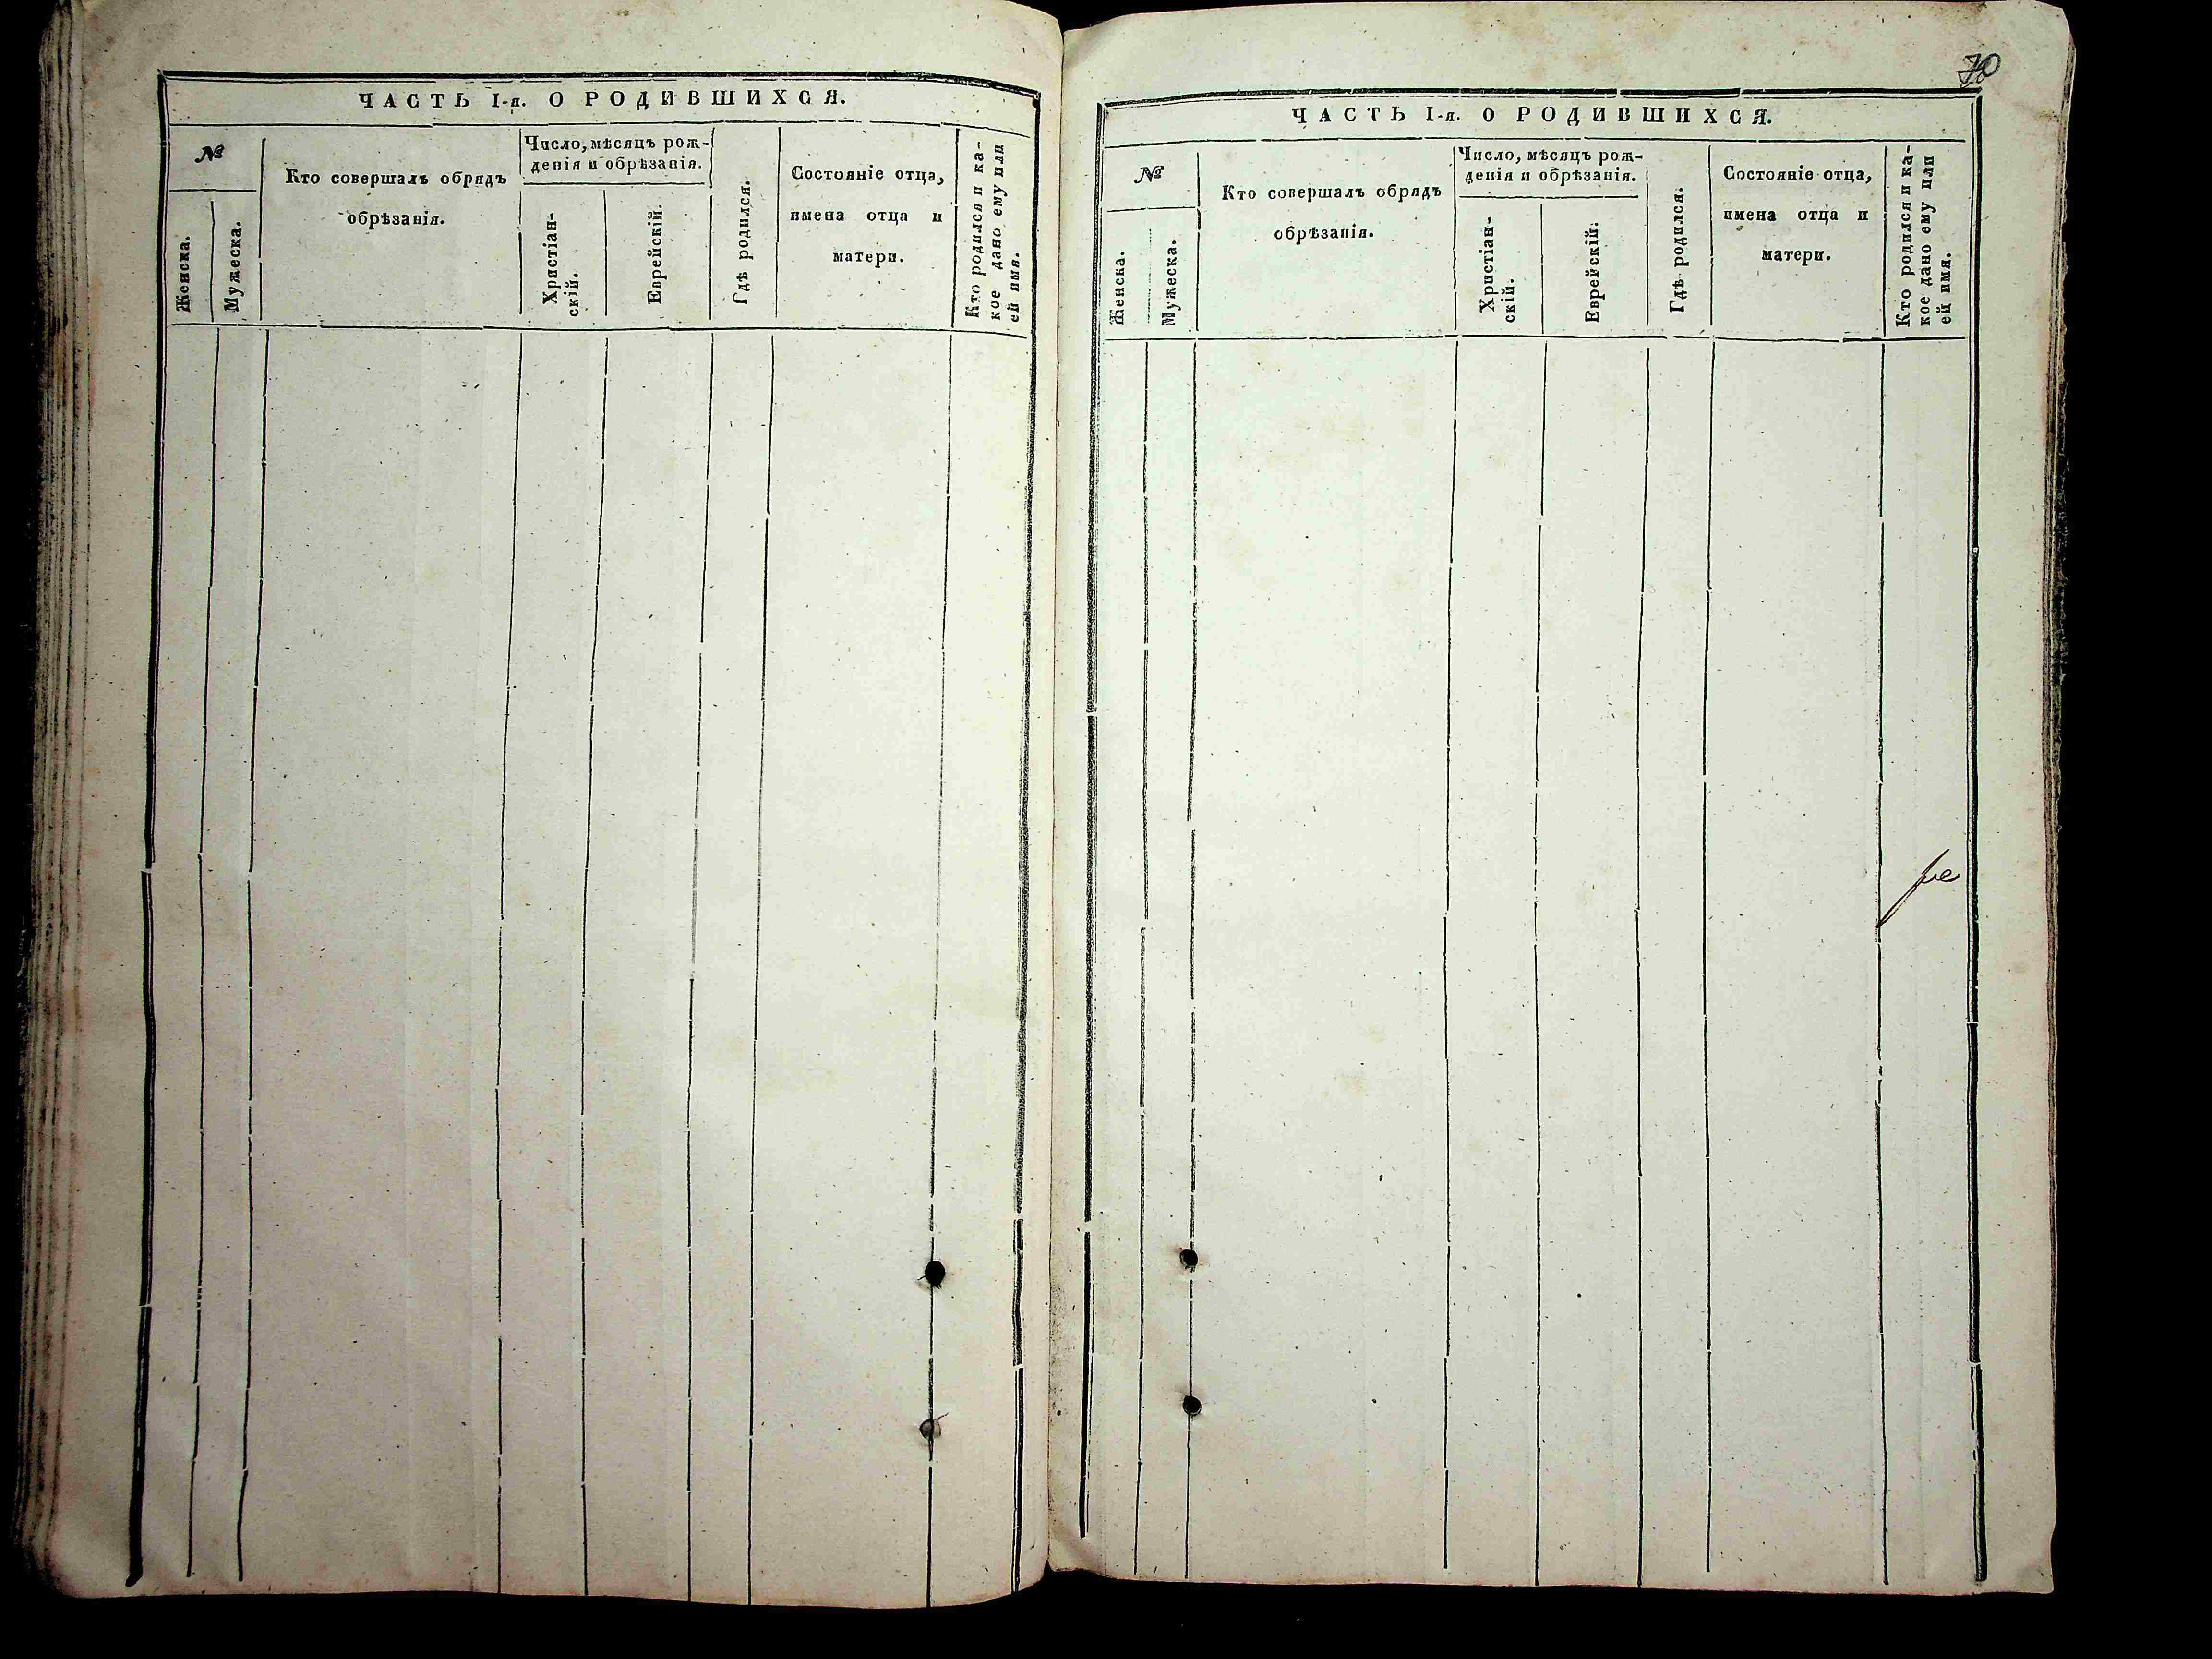 ЧАСТЬ I-я. О РОДИВШИХСЯ.
№
Женска.
Мужеска.
Кто совершалъ обрядъ
обрѣзанія.
Число, мѣсяцъ рож-
денія и обрѣзанія.
Христіан-
скій.
Еврейскій.
Гдѣ родился.
Состояніе отца,
имена отца и
матери.
Кто родился и ка-
кое дано ему или
ей имя.
70
ЧАСТЬ I-я. О РОДИВШИХСЯ.
№
Женска.
Мужеска.
Кто совершалъ обрядъ
обрѣзанія.
Число, мѣсяцъ рож-
денія и обрѣзанія.
Христіан-
скій.
Еврейскій.
Гдѣ родился.
Состояніе отца,
имена отца и
матери.
Кто родился и ка-
кое дано ему или
ей имя.